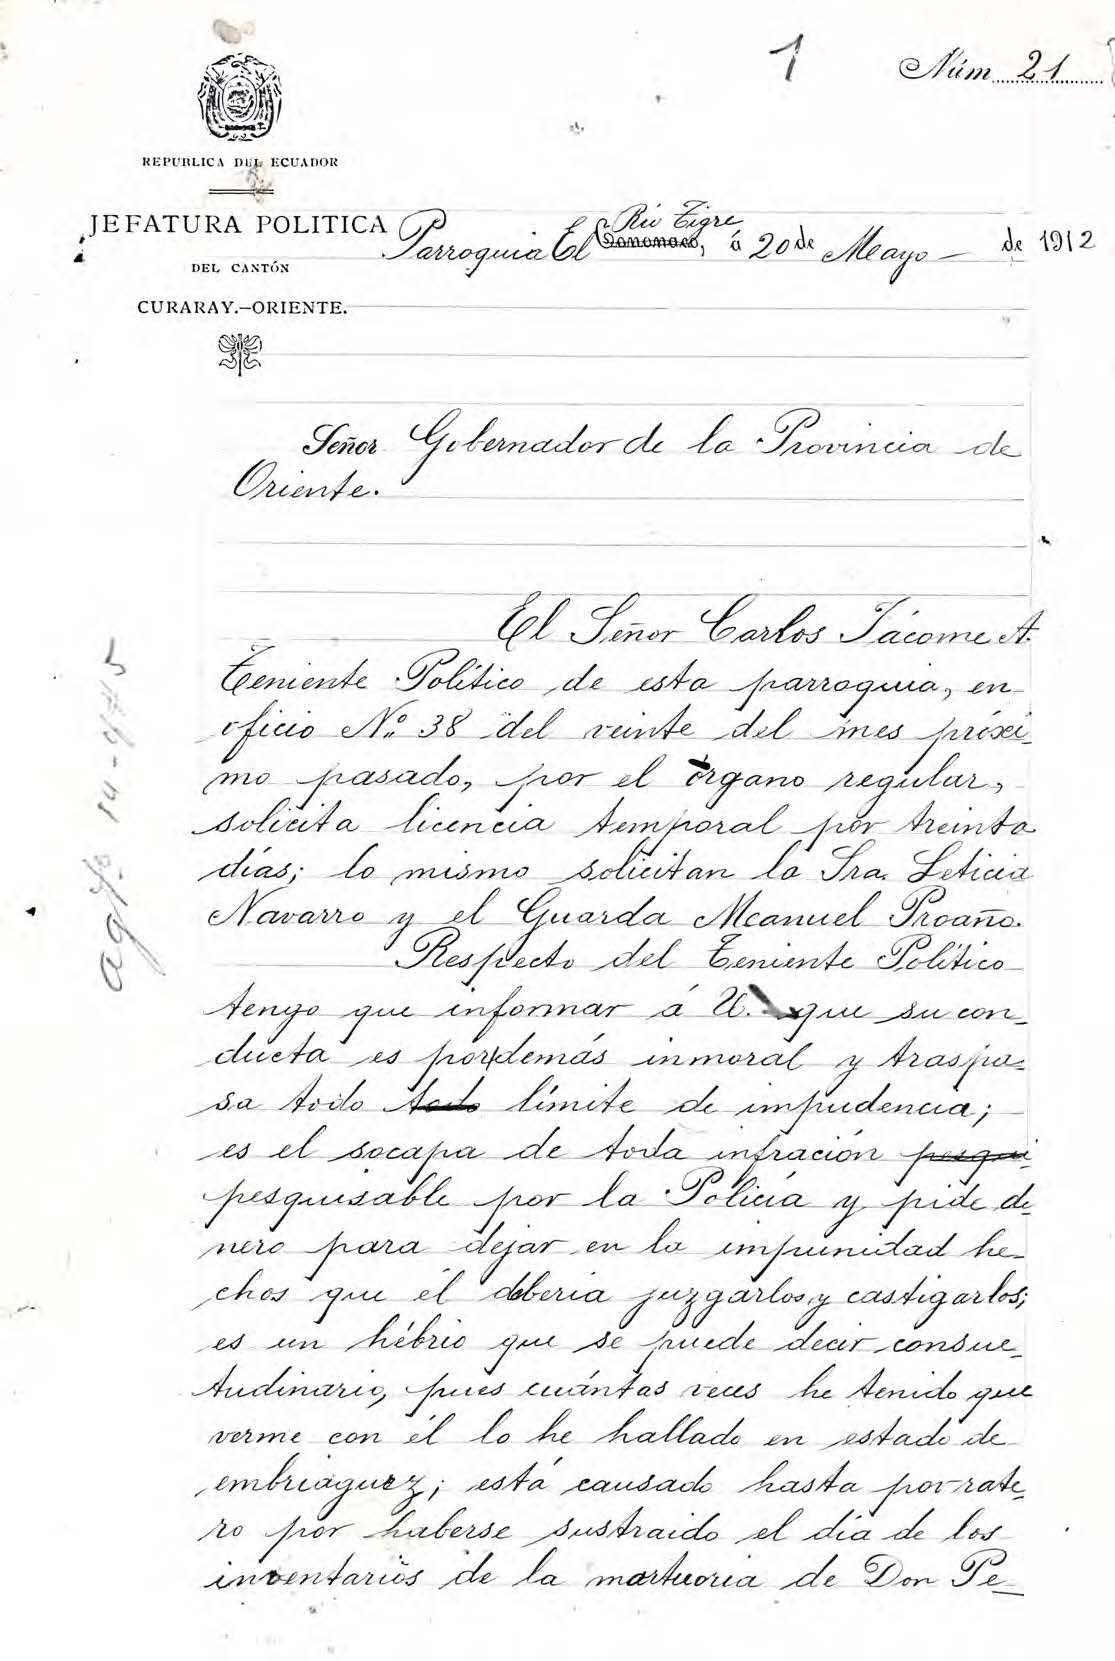 1
Núm 21
REPUBLICA DEL ECUADOR
JEFATURA POLITICA
DEL CANTÓN
CURARAY.-ORIENTE.
Río Tigre
Parroquia El Cononaco, á 20 de Mayo de 1912
Señor Gobernador de la Provincia de
Oriente.
El Señor Carlos Jácome A.
Teniente Político de esta parroquia, en
oficio No. 38 del veinte del mes próxi-
mo pasado, por el órgano regular,
solicita licencia temporal por treinta
días; lo mismo solicitan la Sra. Leticia
Navarro y el Guarda Manuel Proaño.
Respecto del Teniente Político
tengo que informar á U. que su con-
ducta es por demás inmoral y traspa-
sa todo todo límite de impudencia;
es el socapa de toda infración pesqui
pesquisable por la Policía y pide di-
nero para dejar en la impunidad he-
chos que él debería juzgarlos y castigarlos;
es un hébrio que se puede decir consue-
tudinario, pues cuántas veces he tenido que
verme con él lo he hallado en estado de
embriaguez; está causado hasta por rate-
ro por haberse sustraido el día de los
inventarios de la mortuoria de Don Pe-